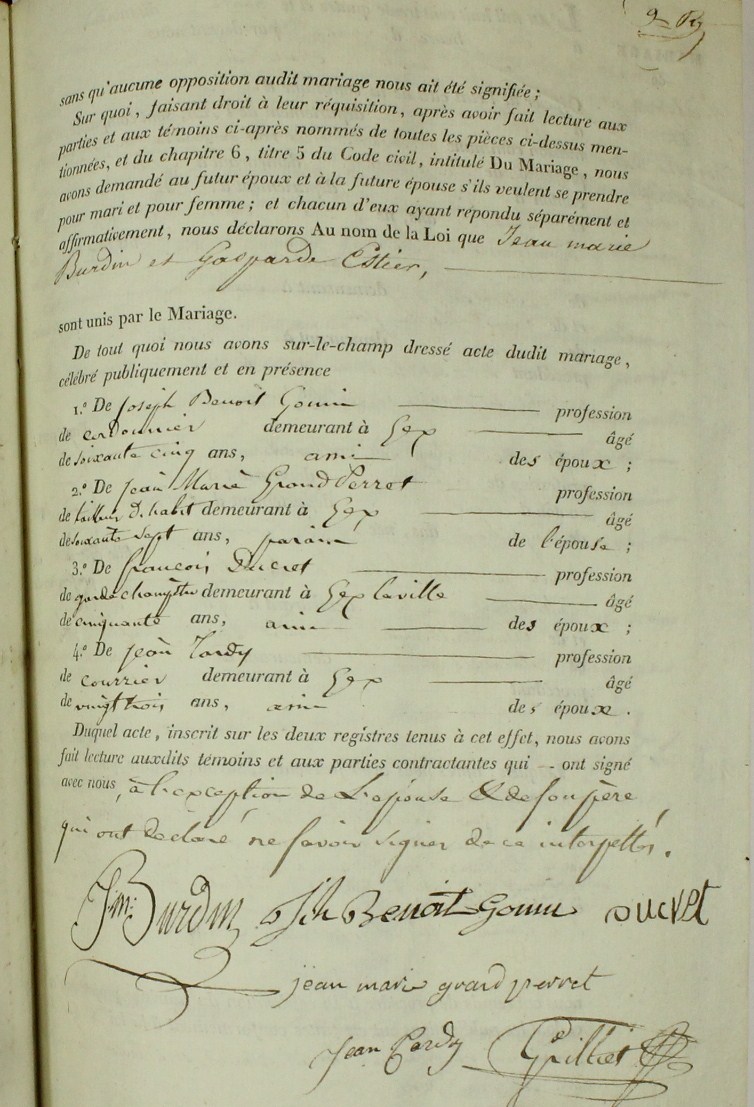 sans qu'aucune opposition audit mariage nous ait été signifiée ;
Sur quoi, faisant droit à leur réquisition, après avoir fait lecture aux
parties et aux témoins ci-après nommés de toutes les pièces ci-dessus men-
tionnées, et du chapitre 6, titre 5 du Code civil, intitulé Du Mariage, nous
avons demandé au futur époux et à la future épouse s'ils veulent se prendre
pour mari et pour femme ; et chacun d'eux ayant répondu séparément et
affirmativement, nous déclarons Au nom de la Loi que Jean marie
Burdin et Gasparde Estier,
sont unis par le Mariage.
De tout quoi nous avons sur-le-champ dressé acte dudit mariage,
célébré publiquement et en présence
1.º De Joseph Benoît Gouin profession
de cordonnier demeurant à Gex âgé
de soixante cinq ans, ami des époux ;
2.º De Jean Marie Grand Perret profession
de tailleur d'habit demeurant à Gex âgé
de soixante sept ans, parain de l'épouse ;
3.º De françois Ducret profession
de garde champêtre demeurant à Gex la ville âgé
de cinquante ans, ami des époux ;
4.º De Jean Tardy profession
de courrier demeurant à Gex âgé
de vingt trois ans, ami des époux.
Duquel acte, inscrit sur les deux registres tenus à cet effet, nous avons
fait lecture auxdits témoins et aux parties contractantes qui ont signé
avec nous, à l'exception de L'épouse & de son père
qui ont déclaré ne savoir signer de ce interpellés.
Jn. m. Burdin Jph Benoît Gouin Ducret
jean marie grand perret
Jean Tardy